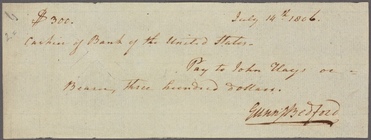 $300.
July 14th 1806.
Cashier of Bank of the United States.
Pay to John Hays or
Bearer, three hundred dollars.
Gunng Bedford